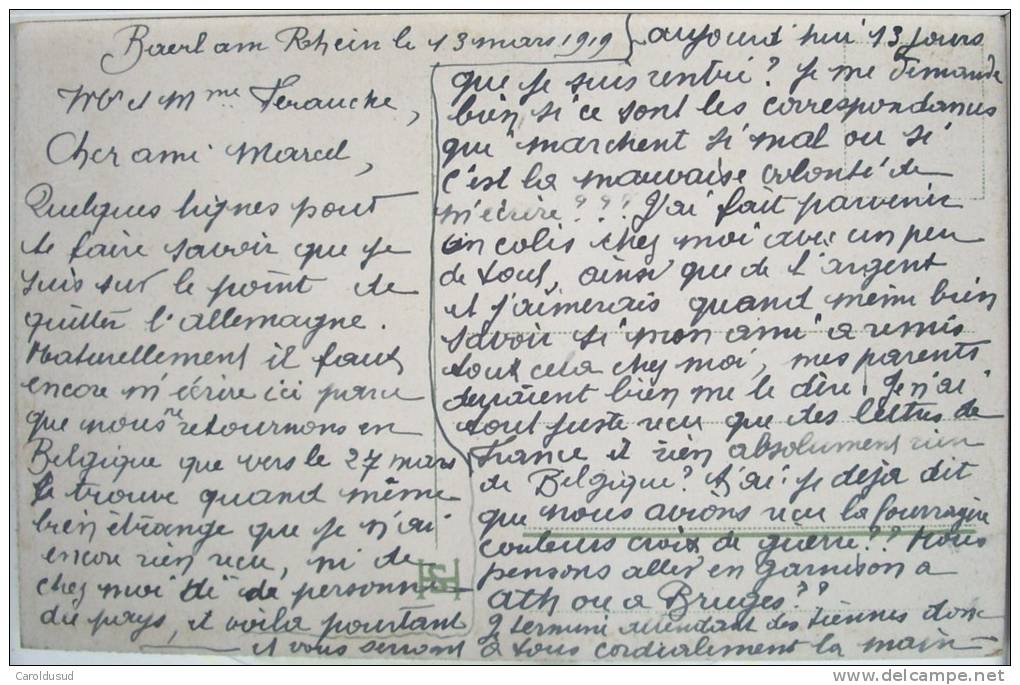 Baerl am Rhein le 13 mars 1919
Mr et Mme Ferauche,
Cher ami Marcel,
Quelques lignes pour
te faire savoir que je
suis sur le point de
quitter l'allemagne.
Naturellement il faut
encore m'écrire ici parce
que nous ne retournons en
Belgique que vers le 27 mars
Je trouve quand même
bien étrange que je n'ai
encore rien recu, ni de
chez moi ni de personne
du pays, et voila pourtant
aujourd'hui 13 jours
que je suis rentré? Je me demande
bien si ce sont les correspondances
qui marchent si mal ou si
c'est la mauvaise volonté de
m'écrire??? J'ai fait parvenir
un colis chez moi avec un peu
de tout, ainsi que de l'argent
et j'aimerais quand même bien
savoir si mon ami a remis
tout cela chez moi, mes parents
devraient bien me le dire! Je n'ai
tout juste recu que des lettres de
France et rien absolument rien
de Belgique? T'ai je deja dit
que nous avions recu la fourragère
couleurs croix de guerre?? Nous
pensons aller en garnison a
Ath ou a Bruges??
Je termine attendant des tiennes donc
et vous serrant a tous cordialement la main
Caroldusud
delcampe.net